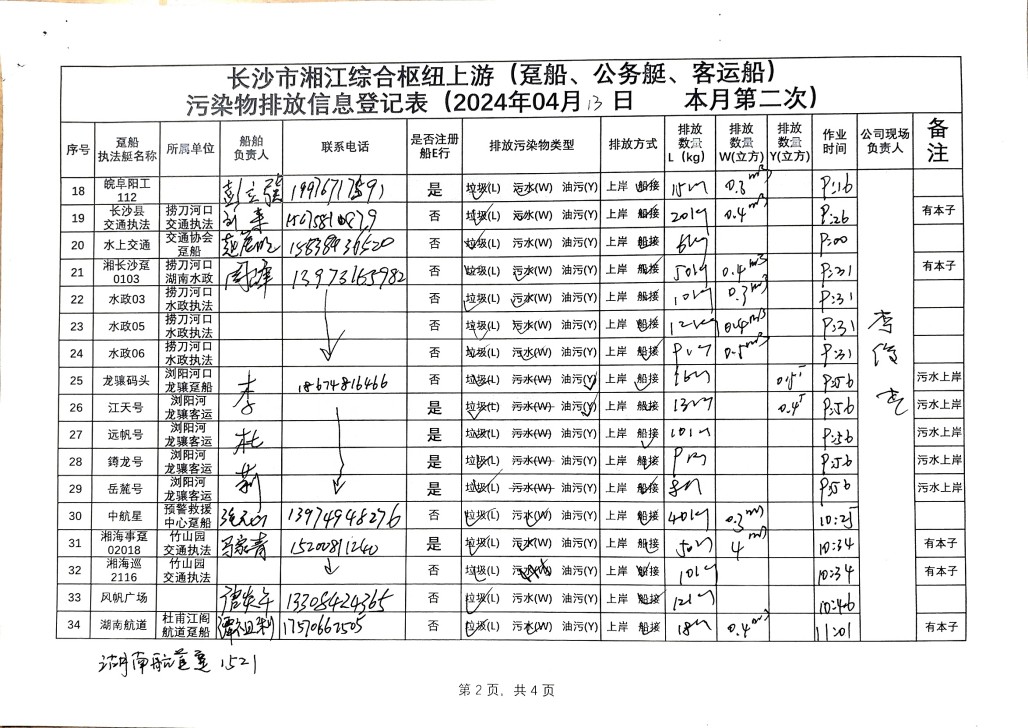 长沙市湘江综合枢纽上游（趸船、公务艇、客运船）
污染物排放信息登记表（2024年04月13日 本月第二次）
序号 趸船执法艇名称 所属单位 船舶负责人 联系电话 是否注册船E行 排放污染物类型 排放方式 排放数量L（kg） 排放数量W(立方) 排放数量Y(立方) 作业时间 公司现场负责人 备注
18 皖阜阳工112 是 垃圾(L) 污水(W) 油污(Y) 上岸 船接 15 0.3m³ 9:16
19 长沙县交通执法 捞刀河口交通执法 否 垃圾(L) 污水(W) 油污(Y) 上岸 船接 20kg 0.4m³ 9:26 有本子
20 水上交通 交通协会趸船 否 垃圾(L) 污水(W) 油污(Y) 上岸 船接 9:00
21 湘长沙趸0103 捞刀河口湖南水政 周 13973165982 否 垃圾(L) 污水(W) 油污(Y) 上岸 船接 50kg 0.4m³ 9:31 有本子
22 水政03 捞刀河口水政执法 否 垃圾(L) 污水(W) 油污(Y) 上岸 船接 10kg 0.3m³ 9:31
23 水政05 捞刀河口水政执法 否 垃圾(L) 污水(W) 油污(Y) 上岸 船接 12kg 0.4m³ 9:31
24 水政06 捞刀河口水政执法 否 垃圾(L) 污水(W) 油污(Y) 上岸 船接 0.5m³ 9:31
25 龙骧码头 浏阳河口龙骧趸船 李 18674816466 否 垃圾(L) 污水(W) 油污(Y) 上岸 船接 16kg 9:56 污水上岸
26 江天号 浏阳河龙骧客运 是 垃圾(L) 污水(W) 油污(Y) 上岸 船接 13kg 0.4T 9:56 污水上岸
27 远帆号 浏阳河龙骧客运 杜 是 垃圾(L) 污水(W) 油污(Y) 上岸 船接 10kg 9:56 污水上岸
28 鐏龙号 浏阳河龙骧客运 是 垃圾(L) 污水(W) 油污(Y) 上岸 船接 9kg 9:56 污水上岸
29 岳麓号 浏阳河龙骧客运 是 垃圾(L) 污水(W) 油污(Y) 上岸 船接 8kg 9:56 污水上岸
30 中航星 预警救援中心趸船 13974948276 否 垃圾(L) 污水(W) 油污(Y) 上岸 船接 40kg 0.3m³ 10:25
31 湘海事趸02018 竹山园交通执法 15200811240 是 垃圾(L) 污水(W) 油污(Y) 上岸 船接 50kg 4m³ 10:34 有本子
32 湘海巡2116 竹山园交通执法 否 垃圾(L) 污水(W) 油污(Y) 上岸 船接 10kg 10:34 有本子
33 风帆广场 13308424365 否 垃圾(L) 污水(W) 油污(Y) 上岸 船接 12kg 10:46
34 湖南航道 杜甫江阁航道趸船 17570662505 否 垃圾(L) 污水(W) 油污(Y) 上岸 船接 18kg 0.4m³ 11:01 有本子
湖南航道趸 1521
第 2 页，共 4 页